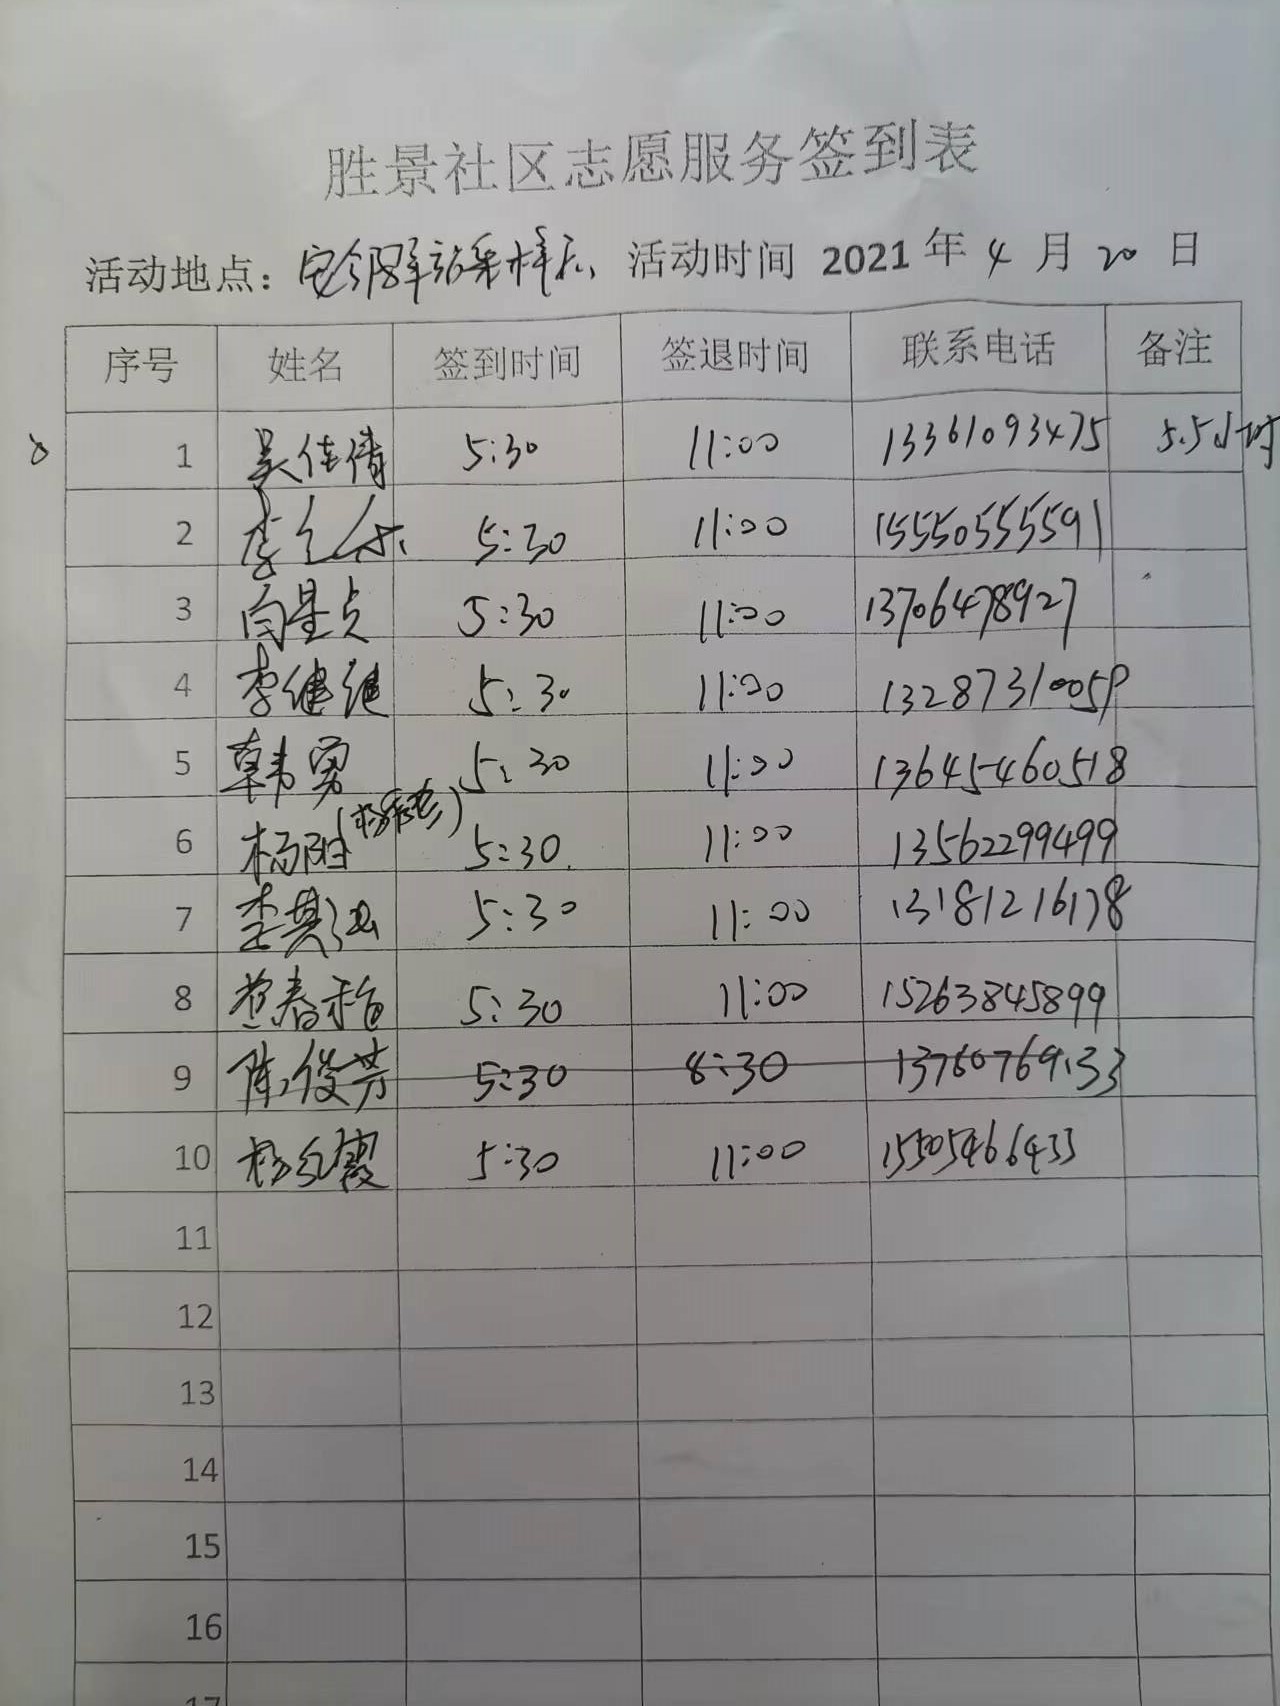 胜景社区志愿服务签到表
活动地点： 活动时间 2021 年 4 月 20 日
序号 姓名 签到时间 签退时间 联系电话 备注
1 吴佳倩 5:30 11:00 13361093475 5.5小时
2 李 5:30 11:00 15550555591
3 向星点 5:30 11:00 13706478927
4 李继継 5:30 11:00 13287310059
5 韩勇 5:30 11:00 13645460518
6 杨阳 5:30 11:00 13562299499
7 李其 5:30 11:00 13181216178
8 春 5:30 11:00 15263845899
9 陈俊芳 5:30 8:30 13760769133
10 杨红霞 5:30 11:00 15505466433
11
12
13
14
15
16
17